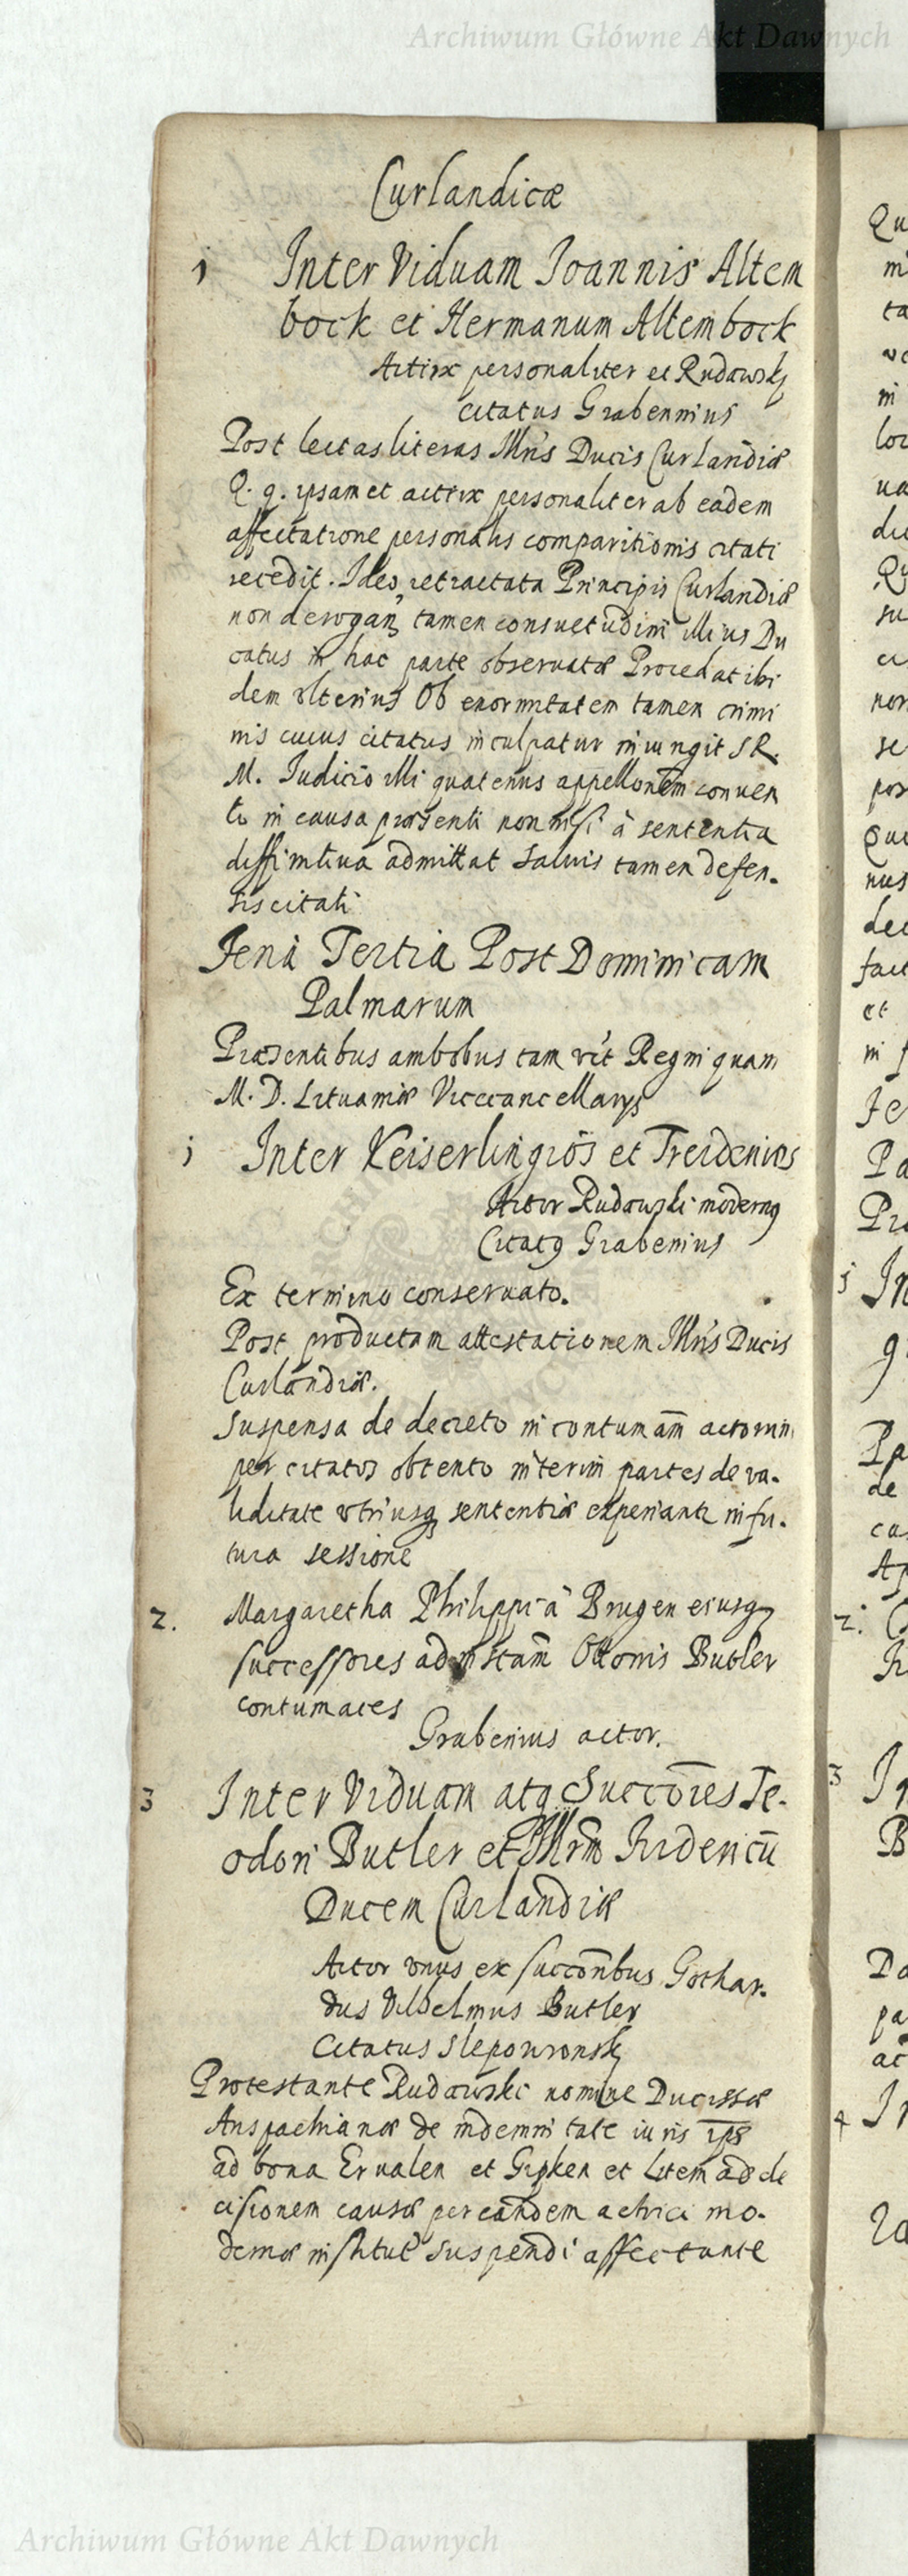 Archiwum Główne Akt Dawnych
Curlandicæ
1 Inter Viduam Joannis Altem
bock et Hermanum Altembock
Actrix personaliter et Rudawskj
citatus Grabennius
Post lectas literas Illris Ducis Curlandiæ
Q. q. ipsamet actrix personaliter ab eadem
affectatione personalis comparitionis citati
recedit. Ideo, retractata Principis Curlandiæ
non derogan tamen consuetudini illius Du
catus in hac parte observatæ Procedat ibi
dem vlterius Ob enormitatem tamen crimi
nis cuius citatus inculpatur iniungit S R.
M. Iudicio illi quatenus appellonem conven
ti in causa præsenti non nisi à sententia
diffinitiva admittat salvis tamen defen.
sis citati
Feria Tertia Post Dominicam
Palmarum
Præsentibus ambobus tam vit Regni quam
M. D. Lituaniæ Vicecancellarys
1 Inter Keiserlingios et Treidenios
Actor Rudawski modernq
Citatq Grabenius
Ex termino conservato.
Post productam attestationem Illris Ducis
Curlandiæ.
Suspensa de decreto in contumam actorum
per citatos obtento interim partes de va.
liditate vtriusq sententiæ experiantr in fu.
tura sessione
2. Margaretha Philippi à Brugen eiusq
successores ad instam Ottonis Butler
contumaces
Grabenius actor.
3 Inter Viduam atq Succores Te.
odori Butler et Illrm Fridericu
Ducem Curlandiæ
Actor vnus ex succoribus Gothar.
dus Vilhelmus Butler
Citatus Slepowronskj
Protestante Rudawski nomine Ducissæ
Anspachianæ de indemnitate iuris ips
ad bona Ervalen et Gipken et Litem ad de
cisionem causæ per eandem actrici mo.
dernæ institut suspendi affectante
Archiwum Główne Akt Dawnych